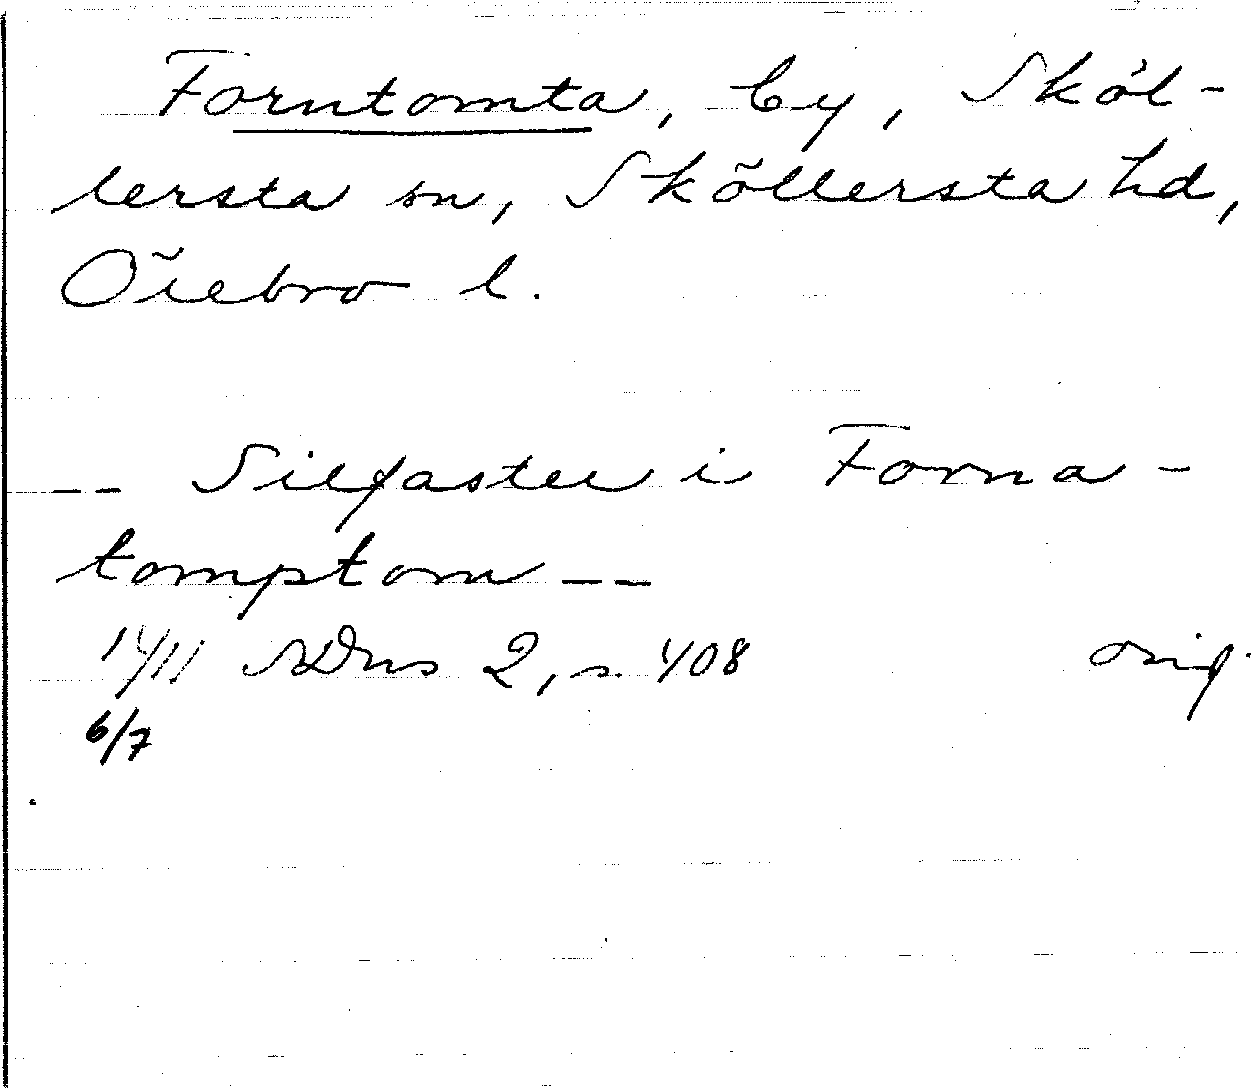 Forntomta, by, Sköl-
lersta sn, Sköllersta hd,
Örebro l.
-- Silfasten i Forna-
tomptom --
1411 SDns 2, s. 408 orig.
6/7